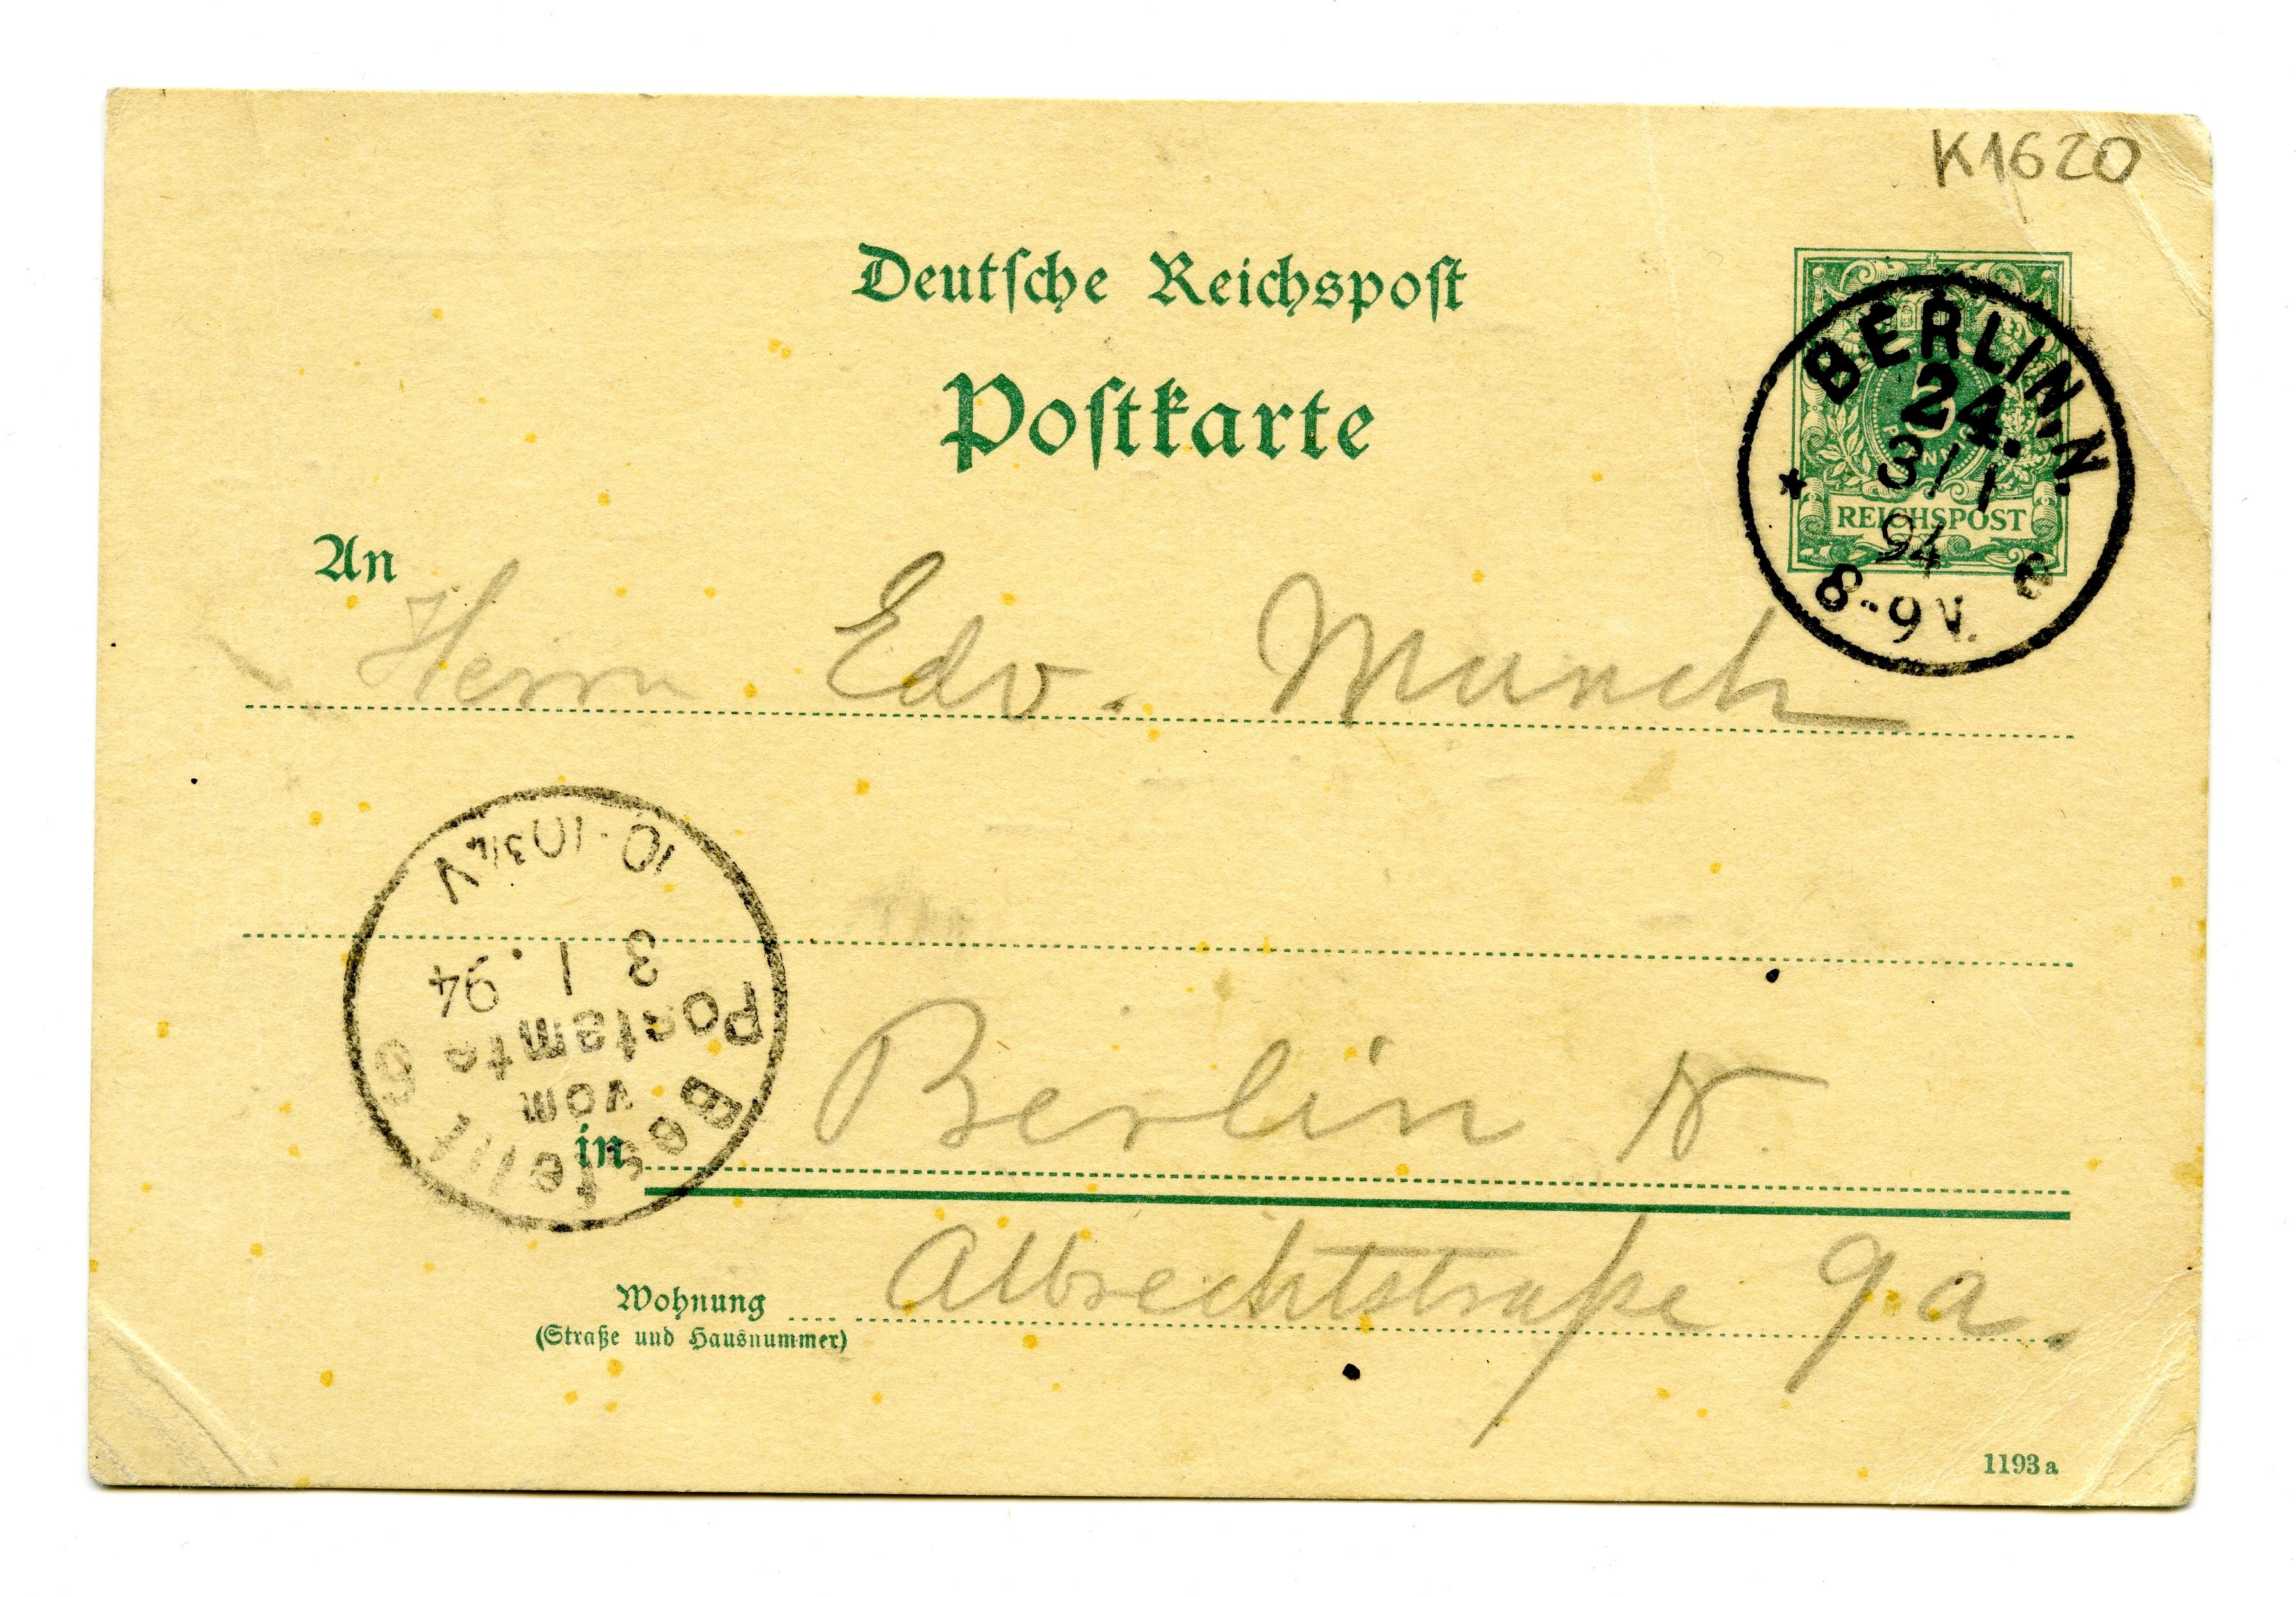 K1620
Deutsche Reichspost
Postkarte
BERLIN.N.
24.
3/1
94
8-9V.
REICHSPOST
An
Herrn Edv. Munch
Bestellt
vom
Postamte 6
3 1. 94
10-10 3/4 V
in Berlin N.
Wohnung Albrechtstraße 9 a.
(Straße und Hausnummer)
1193 a